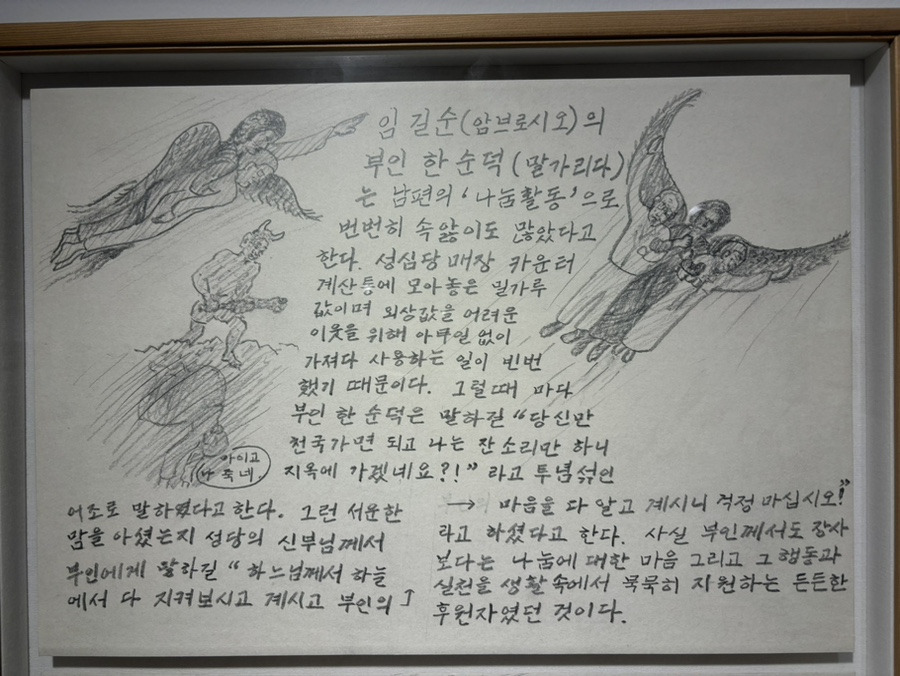 임 길순(암브로시오)의
부인 한 순덕(말가리다)
는 남편의 '나눔활동'으로
번번히 속앓이도 많았다고
한다. 성심당 매장 카운터
계산통에 모아놓은 밀가루
값이며 외상값을 어려운
이웃을 위해 아무일 없이
가져다 사용하는 일이 빈번
했기 때문이다. 그럴때 마다
부인 한 순덕은 말하길 "당신만
천국가면 되고 나는 잔소리만 하니
지옥에 가겠네요?!" 라고 투념섞인
아이고
나 죽네.
어조로 말하였다고 한다. 그런 서운한
맘을 아셨는지 성당의 신부님께서
부인에게 말하길 "하느님께서 하늘
에서 다 지켜보시고 계시고 부인의
→ 마음을 다 알고 계시니 걱정 마십시오!"
라고 하셨다고 한다. 사실 부인께서도 장사
보다는 나눔에 대한 마음 그리고 그 행동과
실천을 생활속에서 묵묵히 지원하는 든든한
후원자였던 것이다.